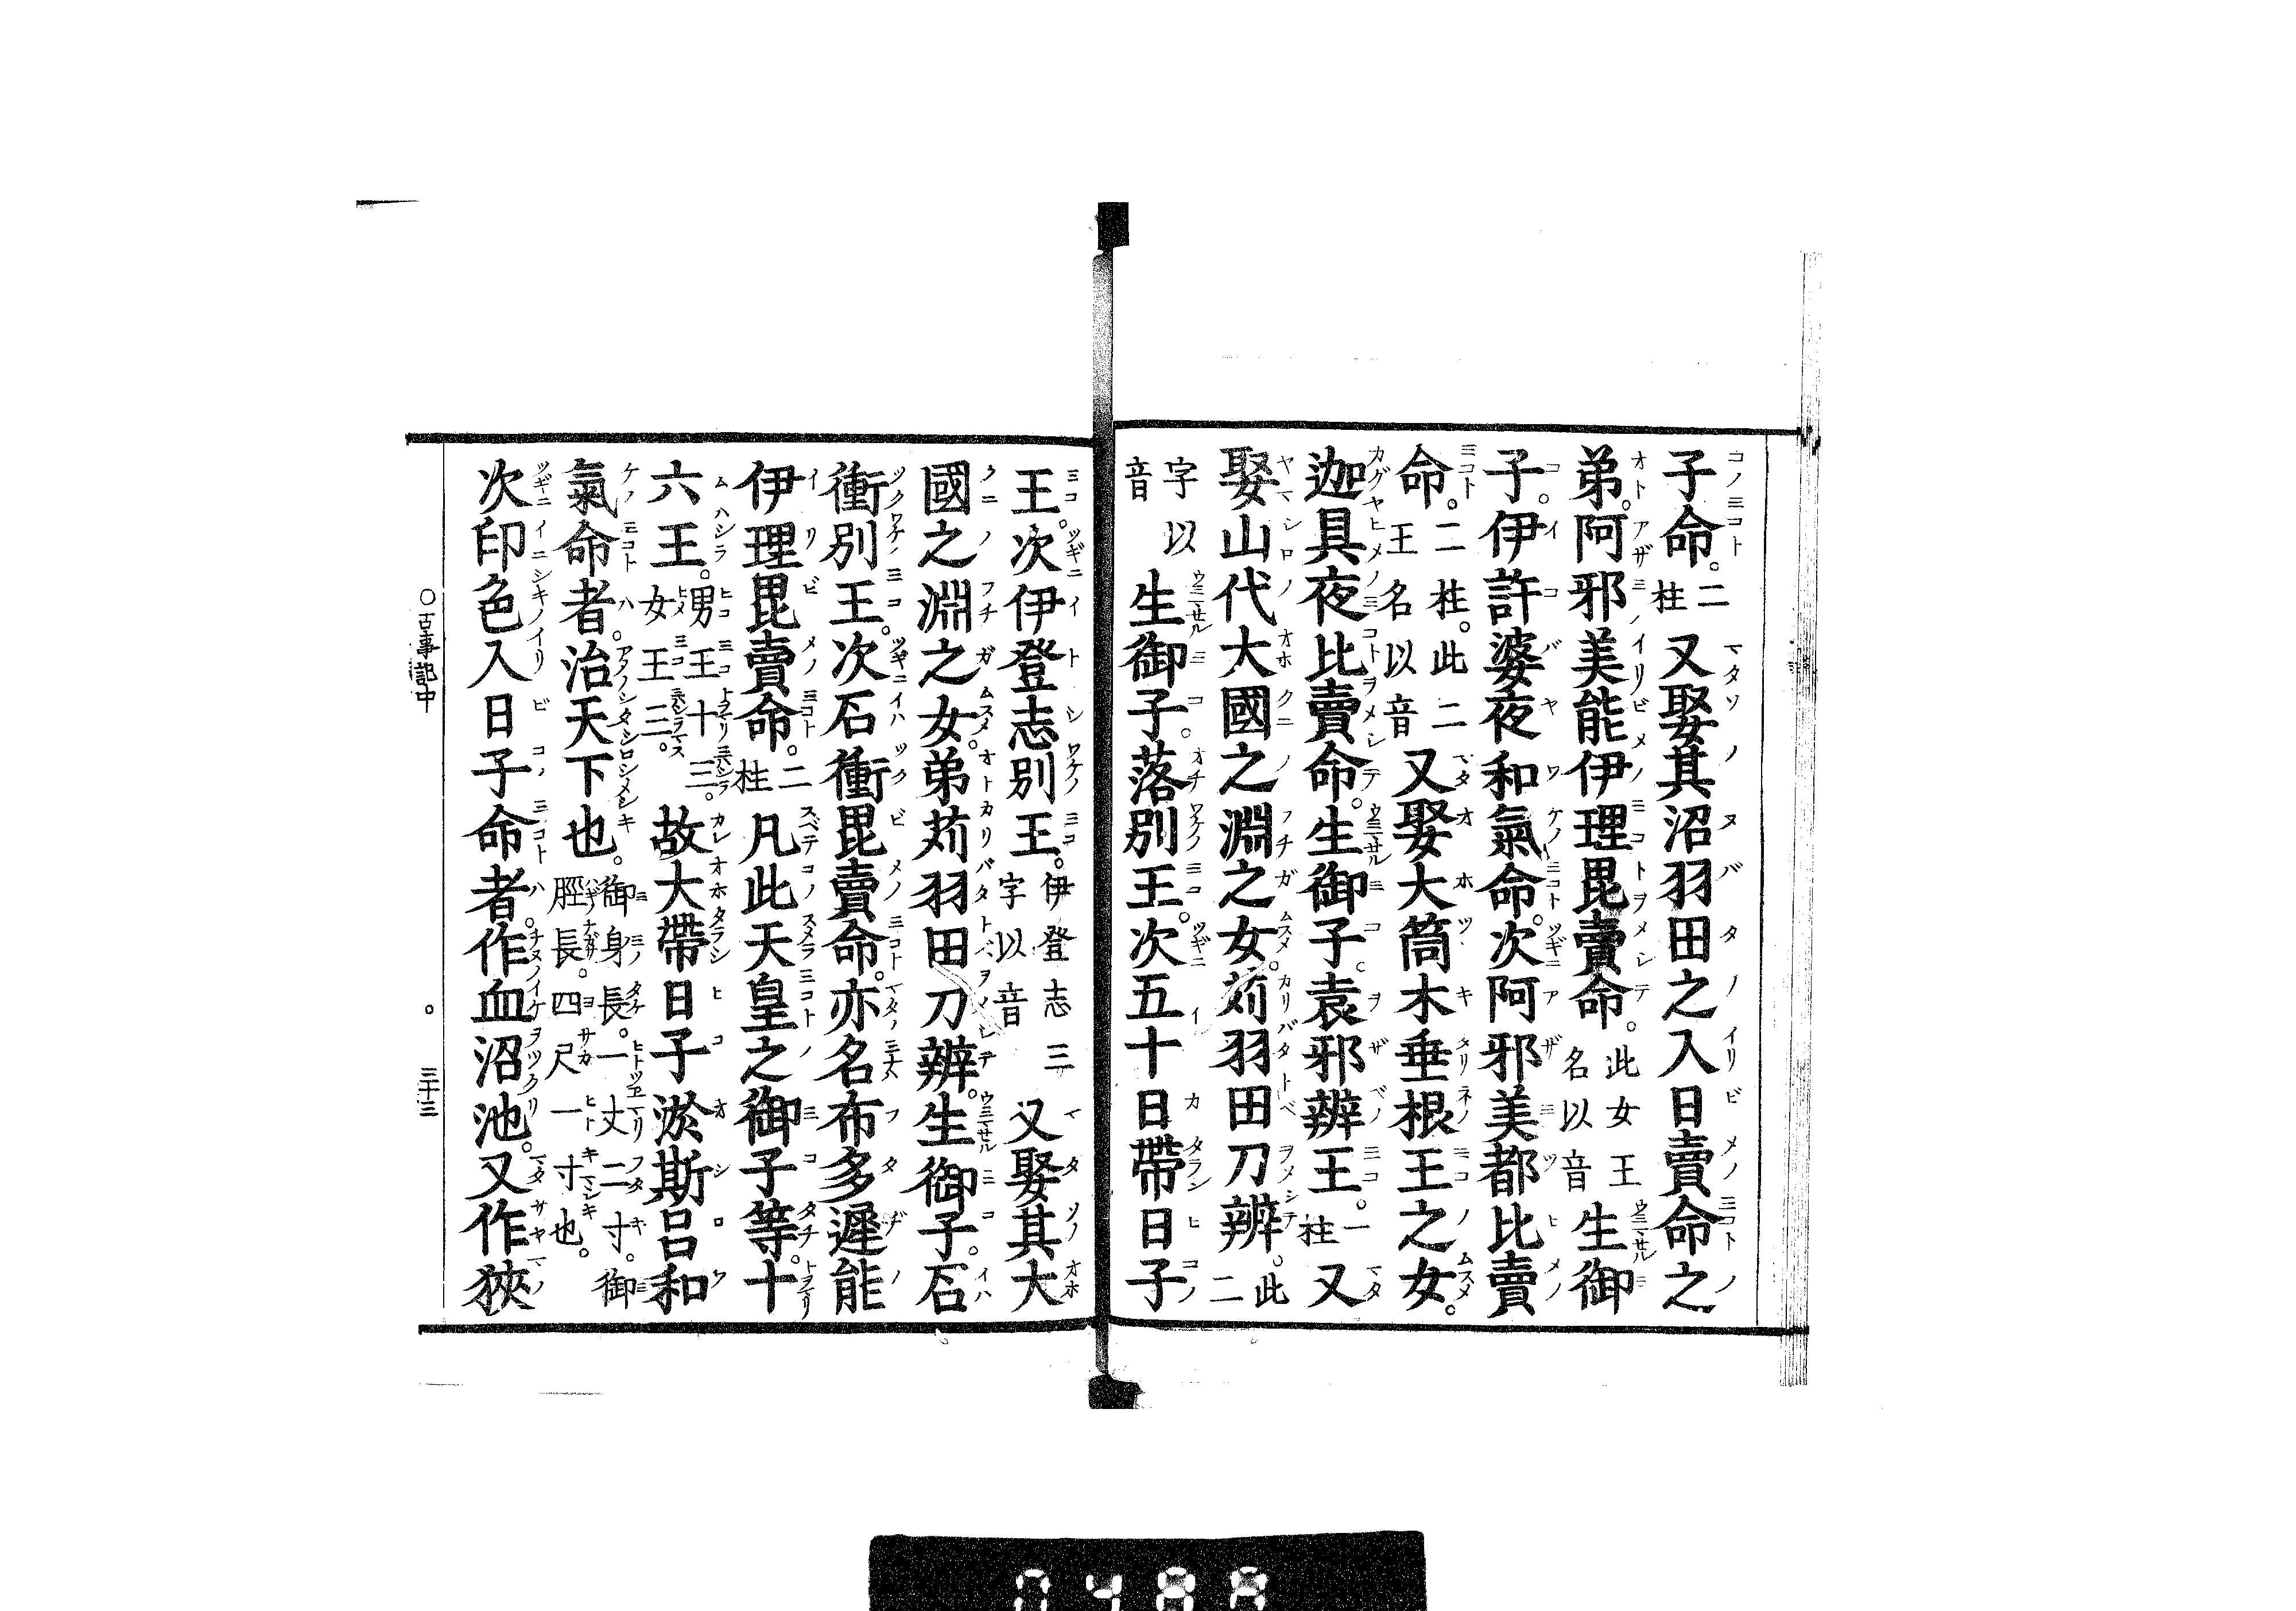 子命。二柱又娶其沼羽田之入日賣命之
弟。阿邪美能伊理毘賣命。此女王名以音生御
子。伊許婆夜和氣命。次阿邪美都比賣
命。二柱。此二王名以音又娶大筒木垂根王之女。
迦具夜比賣命。生御子。袁邪辨王。一柱又
娶山代大國之淵之女。苅羽田刀辨。此二
字以音生御子。落別王。次五十日帶日子
王。次伊登志別王。伊登志三字以音又娶其大
國之淵之女。弟苅羽田刀辨。生御子。石
衝別王。次石衝毘賣命。亦名布多遲能
伊理毘賣命。二柱凡此天皇之御子等。十
六王。男王十三。女王三。故大帶日子淤斯呂和
氣命者。治天下也。御身長。一丈二寸。御脛長。四尺一寸也。
次印色入日子命者。作血沼池。又作狹
○古事記中 。 三十三